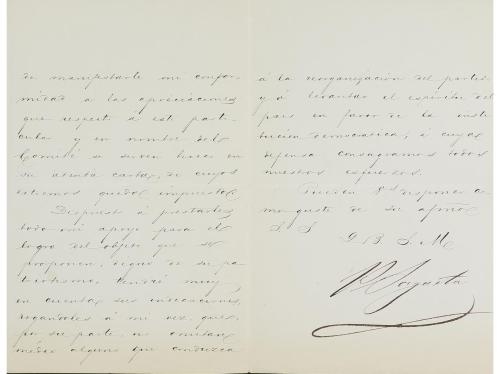 de manifestarle mi confor-
midad a las apreciaciones
que respecto á este parti-
cular y en nombre del
Comité se sirven hacer en
su atenta carta, de cuyos
estremos quedo impuesto.
Dispuesto á prestarles
todo mi apoyo para el
logro del objeto que se
proponen, digno de su pa-
triotismo, tendré muy
en cuenta sus indicaciones,
rogándoles á mi vez, que,
por su parte, no omitan
medio alguno que conduzca
á la reorganizacion del partido
y á levantar el espíritu del
pais en favor de la insti-
tucion democratica, á cuya
defensa consagramos todos
nuestros esfuerzos.
Pueden Vs disponer co-
mo guste de su afmo
S. S.
Q. B. S. M.
P. Sagasta